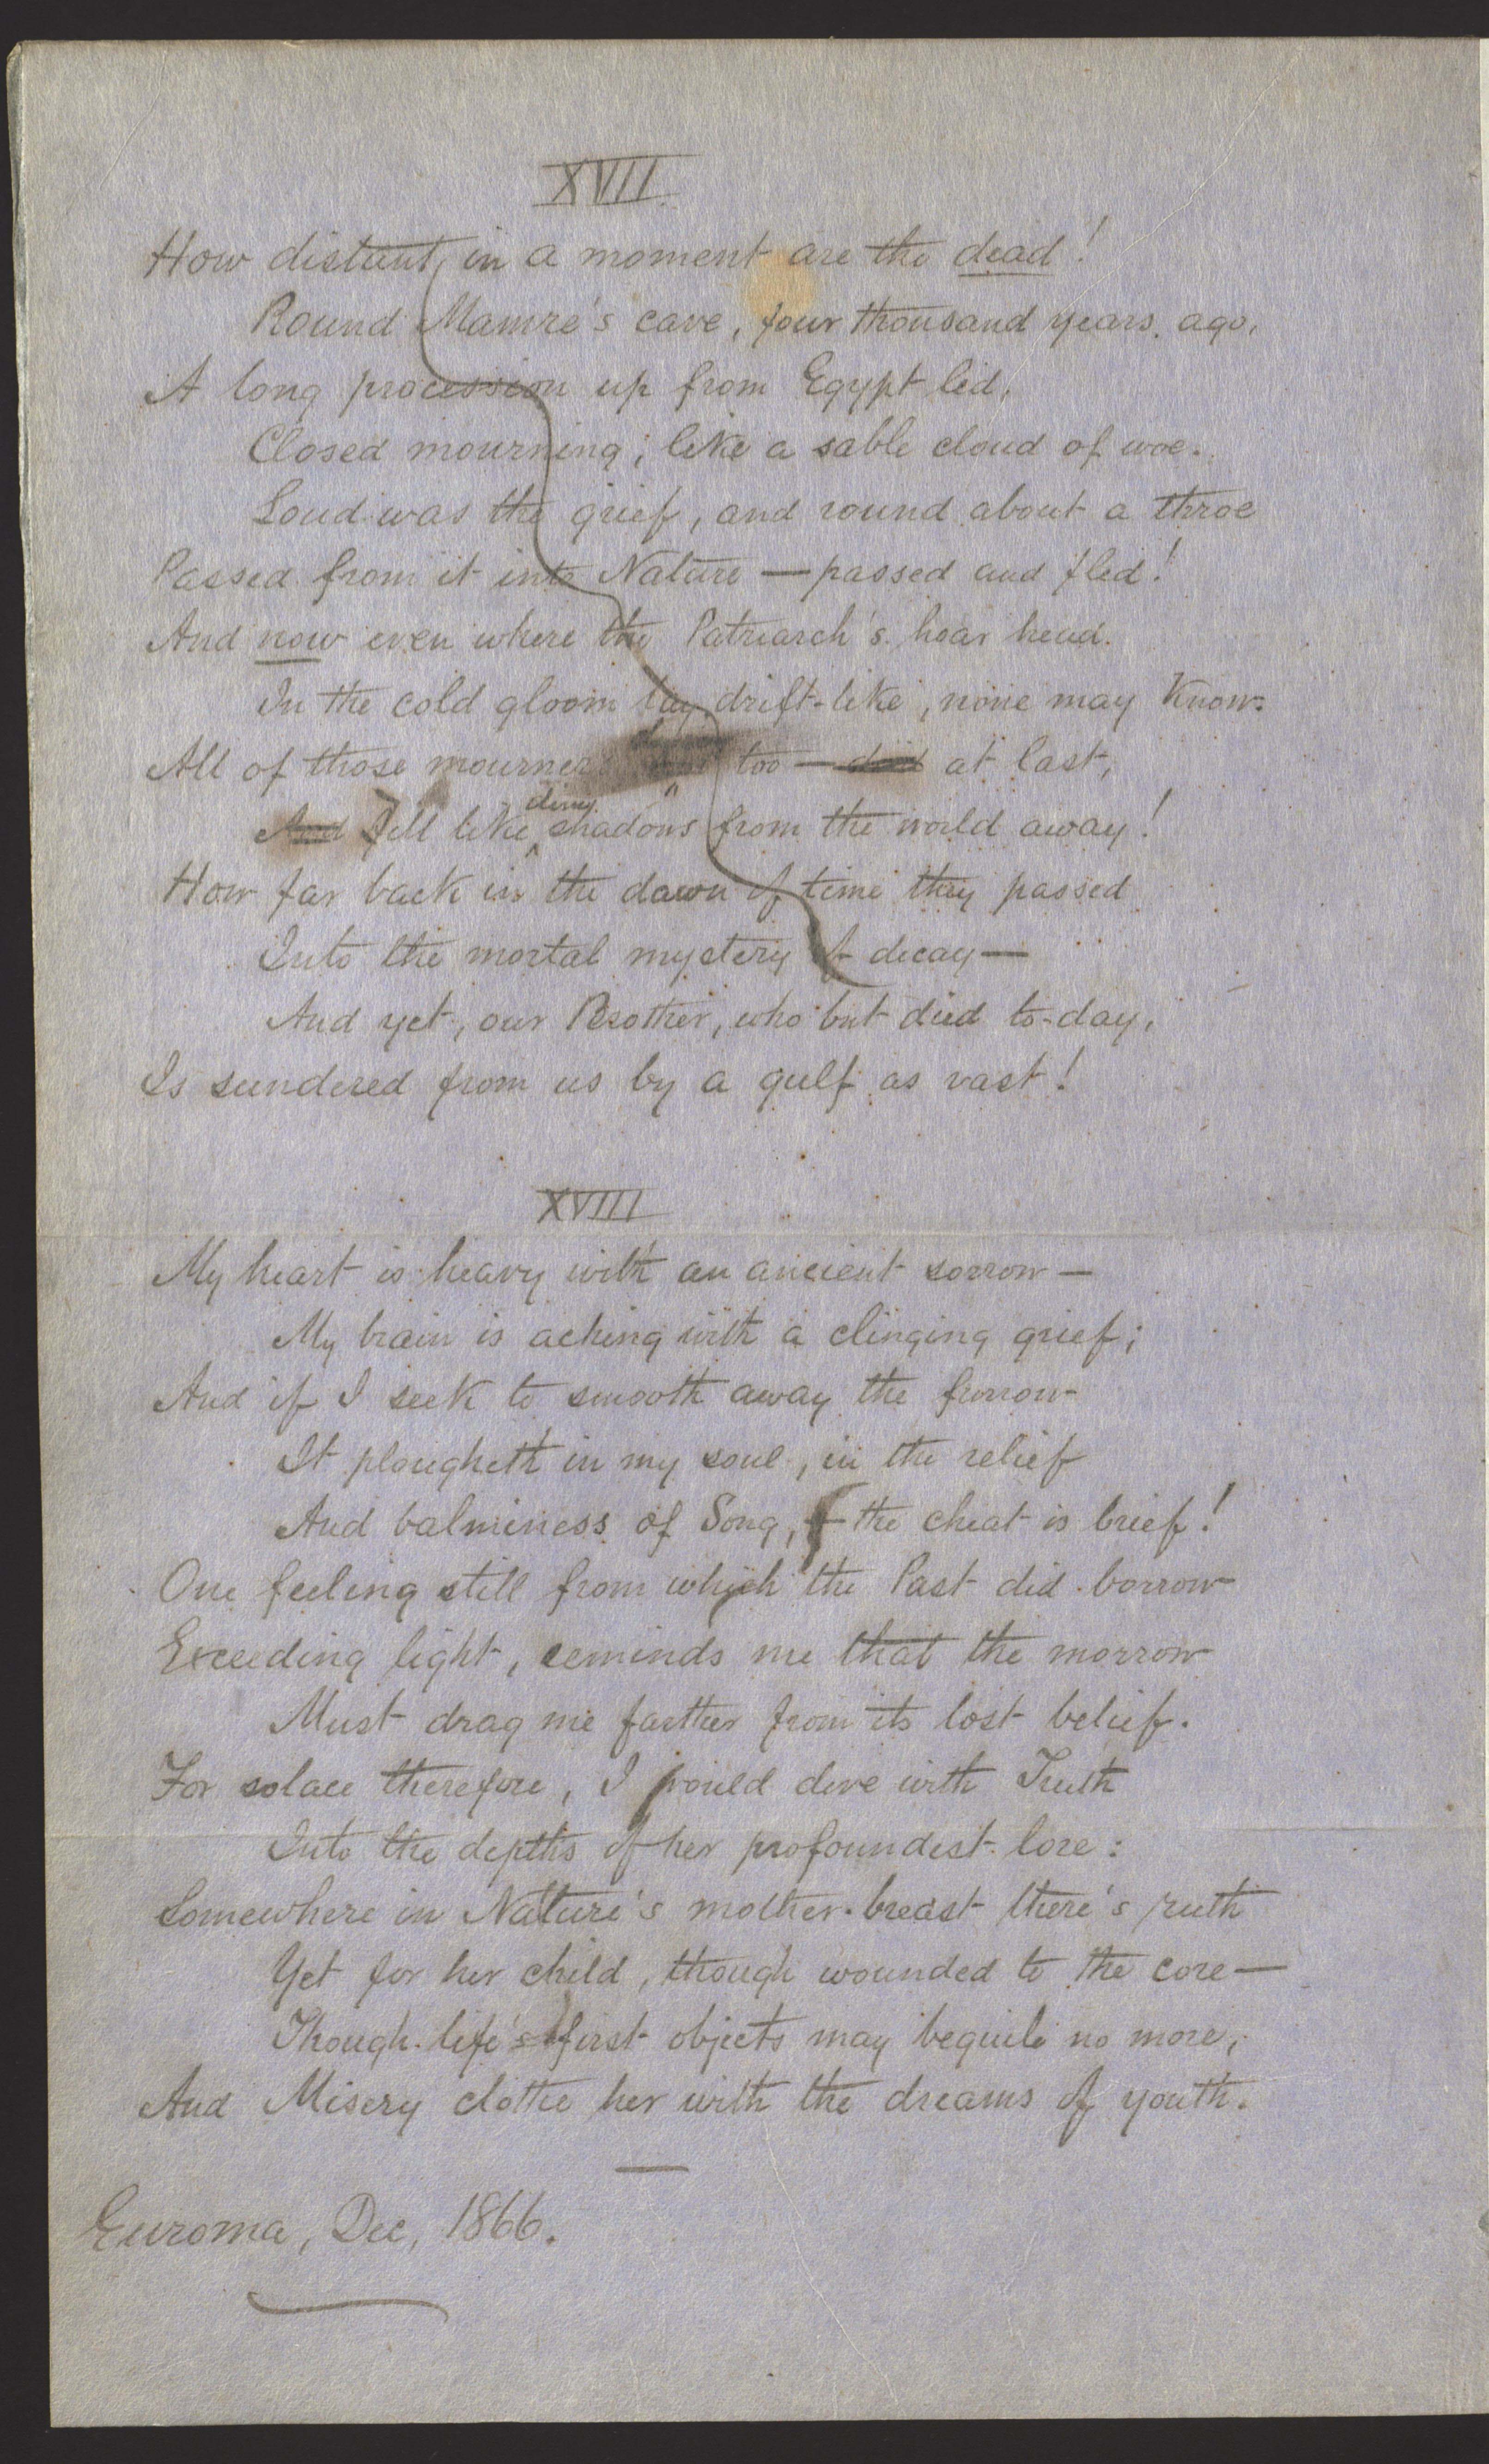 XVII.
How distant, in a moment are the dead!
Round Mamre's cave, four thousand years ago,
A long procession up from Egypt led,
Closed mourning; like a sable cloud of woe.
Loud was the grief, and round about a throe
Passed from it into Nature — passed and fled!
And now even where the Patriarch's hoar head.
In the cold gloom lay drift-like, none may know.
All of those mourners too — died at last,
And fell like dim shadows from the world away!
How far back in the dawn of time they passed
Into the mortal mystery of decay —
And yet, our Brother, who but died to-day,
Is sundered from us by a gulf as vast!
XVIII
My heart is heavy with an ancient sorrow —
My brain is aching with a clinging grief;
And if I seek to smooth away the furrow
It plougheth in my soul, in the relief
And balminess of Song, — the cheat is brief!
One feeling still from which the Past did borrow
Exceeding light, reminds me that the morrow
Must drag me farther from its lost belief.
For solace therefore, I would dive with Truth
Into the depths of her profoundest lore:
Somewhere in Nature's mother-breast there's ruth
Yet for her child, though wounded to the core —
Though life's first objects may beguile no more,
And Misery clothe her with the dreams of youth.
Euroma, Dec, 1866.